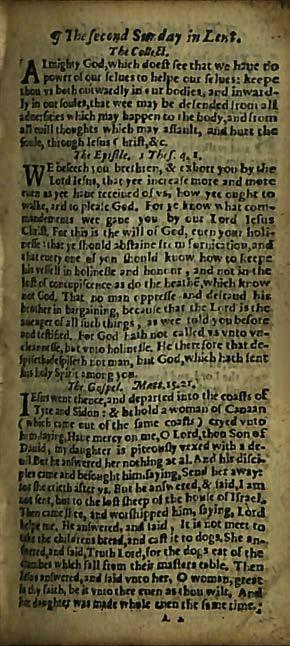 ¶ The second Sunday in Lent.
The Collect.
ALmighty God, which doest see that we haue no
power of our selues to helpe our selues: keepe
thou vs both outwardly in our bodies, and inward-
ly in our soules, that wee may be defended from all
aduersities which may happen to the body, and from
all euill thoughts which may assault, and hurt the
soule, through Iesus Christ, &c.
The Epistle. 1 Thes. 4. 1.
WE beseech you brethren, & exhort you by the
Lord Iesus, that yee increase more and more
euen as yee haue receiued of vs, how yee ought to
walke, and to please God. For ye know what com-
mandements wee gaue you by our Lord Iesus
Christ. For this is the will of God, euen your holi-
nesse: that ye should abstaine from fornication, and
that euery one of you should know how to keepe
his vessell in holinesse and honour, and not in the
lust of concupiscence as do the heathē, which know
not God. That no man oppresse and defraud his
brother in bargaining, because that the Lord is the
auenger of all such things, as wee told you before
and testified. For God hath not called vs vnto vn-
cleannesse, but vnto holinesse. He therefore that de-
spiseth despiseth not man, but God, which hath sent
his holy Spirit among you.
The Gospel. Matt. 15. 21.
IEsus went thence, and departed into the coasts of
Tyre and Sidon: & behold a woman of Canaan
(which came out of the same coasts) cryed vnto
him, saying, Haue mercy on me, O Lord, thou Son of
Dauid, my daughter is piteously vexed with a de-
uil. But he answered her nothing at al. And his disci-
ples came and besought him, saying, Send her away:
for she crieth after vs. But he answered, & said, I am
not sent, but to the lost sheep of the house of Israel.
Then came she, and worshipped him, saying, Lord
helpe me. He answered, and said, It is not meet to
take the childrens bread, and cast it to dogs. She an-
swered, and said, Truth Lord, for the dogs eat of the
crumbes which fall from their masters table. Then
Iesus answered, and said vnto her, O woman, great
is thy faith, be it vnto thee euen as thou wilt. And
her daughter was made whole euen the same time.
A a